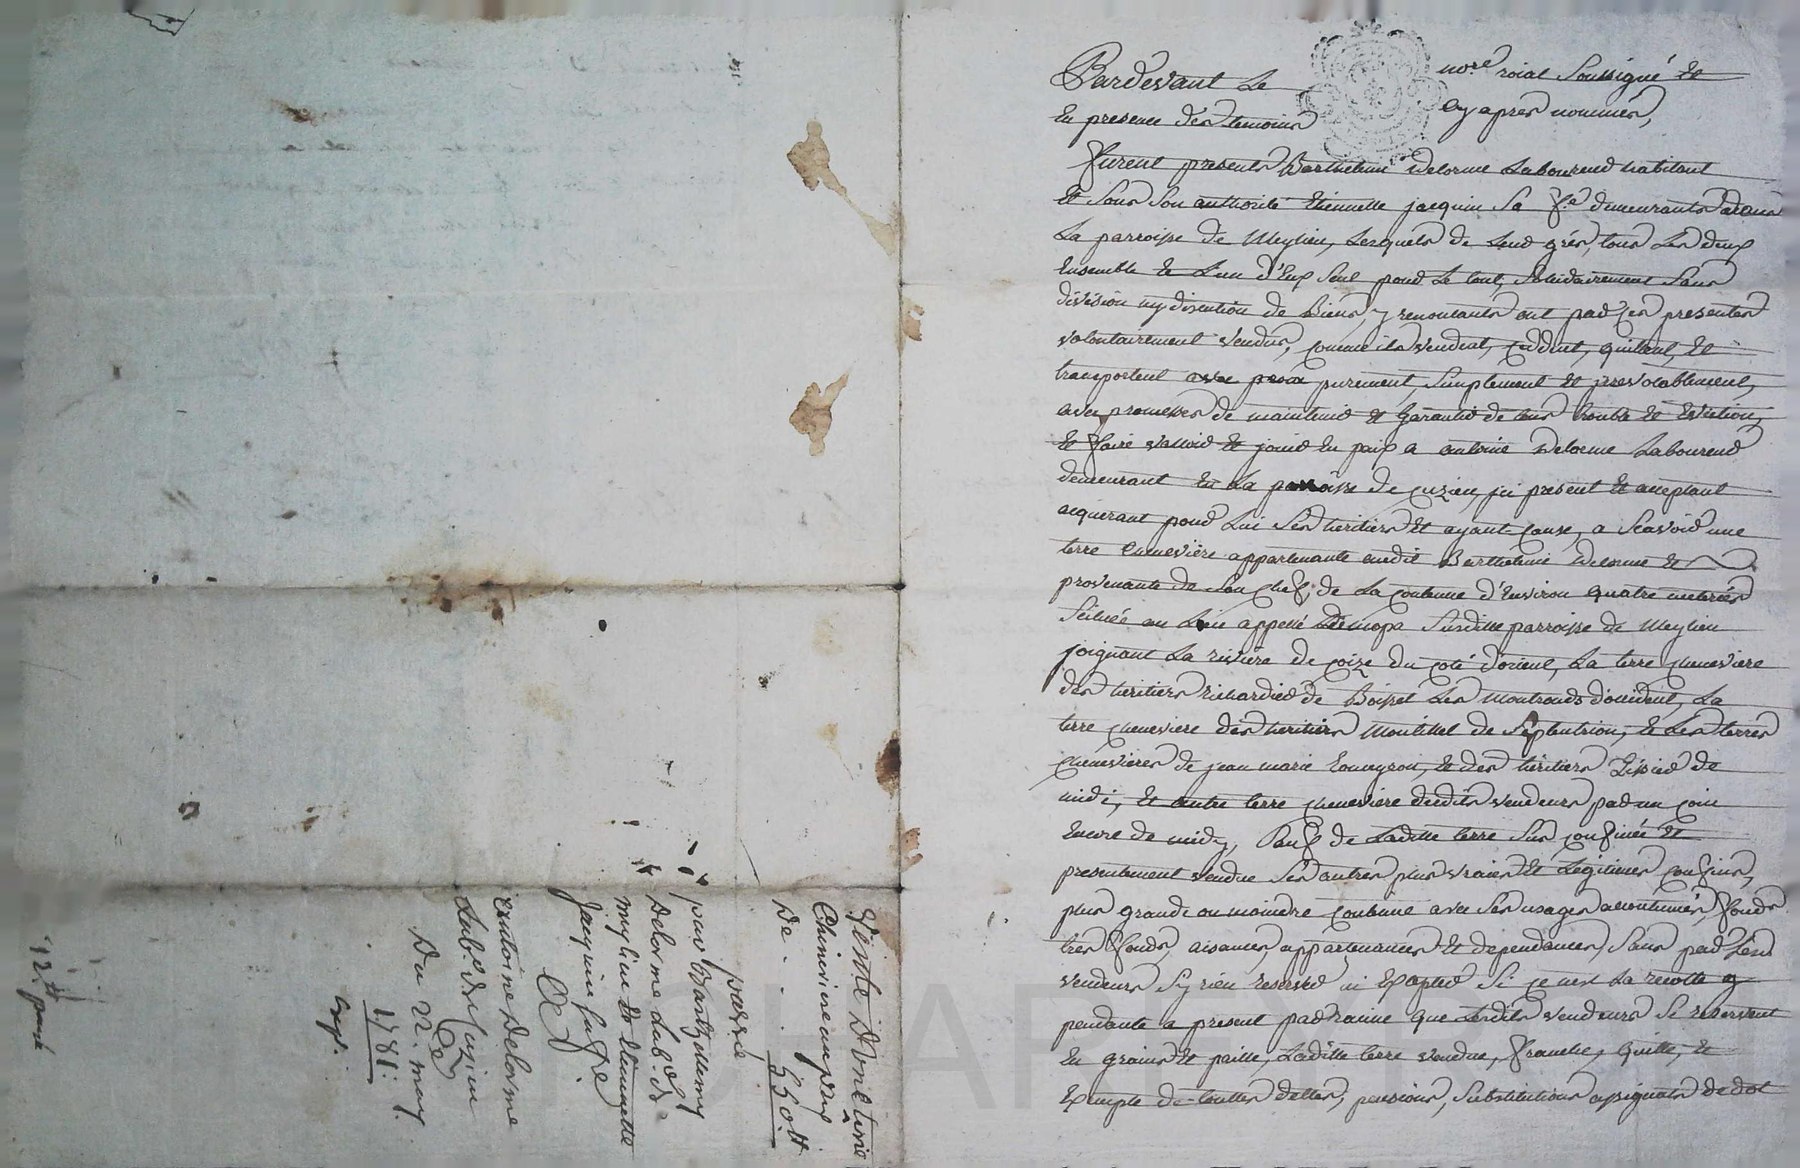 Pardevant Le nore roial Soussigné Et
En presence des temoins cy apres nommés,
Furent presents Barthelemi Delorme Laboureur habitant
Et Sous Son authorité Etiennette jacquin Sa fe demeurants
La parroisse de Meylieu, Lesquels de Leur grés, tous Les deux
Ensemble Et L'un d'Eux Seul pour Le tout, Solidairement Sans
division ny discution de Biens, y renoncants ont par Ces presentes
volontairement vendus, comme ils vendent, ceddent, quittent, Et
transportent purement, Simplement Et jrrevocablement,
avec promesses de maintenir Et Garantir de tous trouble Et Eviction,
Et faire valloir Et jouir En paix a antoine Delorme Laboureur
demeurant En La parroisse de cuzieu, jci present Et acceptant
acquerant pour Lui Ses heritiers Et ayant cause, a Scavoir une
terre cheneviere appartenante audit Barthelemi Delorme Et
provenante de Son chef, de La contenue d'Environ quatre meterées
Scituée au Lieu appellé Susditte parroisse de Meylieu
joignant La riviere de Coize du coté d'orient, La terre cheneviere
des heritiers richardier de Boisset Les Montronds d'occident, La
terre cheneviere des heritiers Montillet de Septentrion, Et Les terres
cheneviere de jean marie Et des heritiers de
midi, Et autre terre cheneviere desdits vendeurs par un coin
Encore de midy, Sauf de Laditte terre Sus confinée Et
presentement vendue Ses autres plus vraies Et Legitimes confins,
plus grande ou moindre contenue avec Ses usages accoutumés, fonds
tres fonds, aisances, appartenances Et dependances, Sans par Les
vendeurs Sy rien reserver ni Excepter Si ce n'est La recolte y
pendante a present par racine que Lesdits vendeurs Se reservent
En grains Et paille, Laditte terre vendue, franche, quitte, Et
Exempte de touttes dettes, pensions, Substitutions assignats de dot
Vente D'une terre
Cheneviere au prix
De . . . 550 tt
passée
par Barthellemy
Delorme Lab. de
mylieu Et Etiennette
Jacquin Sa fe
A
Antoine Delorme
Lab. de Cuzieu
Du 22. may
1781:
Exp.
12 tt payé